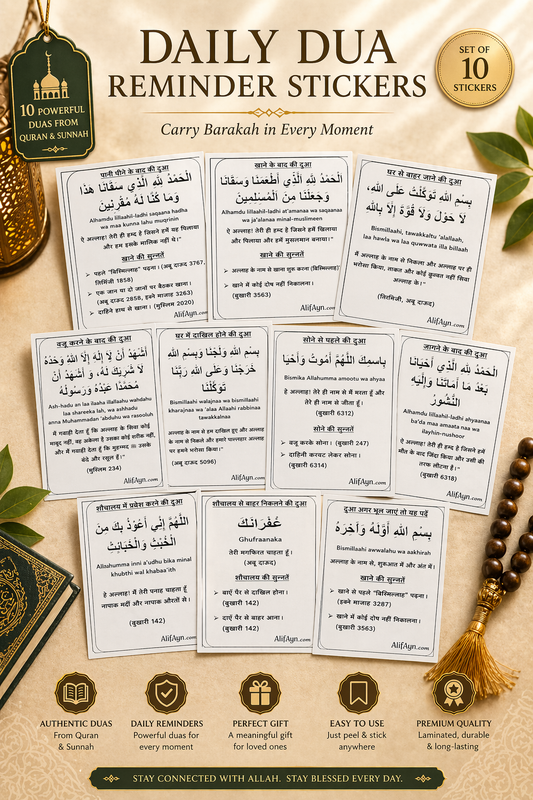 DAILY DUA
REMINDER STICKERS
Carry Barakah in Every Moment
SET OF
10
STICKERS
10 POWERFUL
DUAS FROM
QURAN & SUNNAH
पानी पीने के बाद की दुआ
الْحَمْدُ لِلَّهِ الَّذِي سَقَانَا هَذَا
وَمَا كُنَّا لَهُ مُقْرِنِينَ
Alhamdu lillaahil-ladhi saqaana hadha
wa maa kunna lahu muqrinin
ऐ अल्लाह! तेरी ही हम्द है जिसने हमें यह पिलाया
और हम इसके मालिक नहीं थे।"
खाने की सुन्नतें
➤ पहले "बिस्मिल्लाह" पढ़ना। (अबू दाऊद 3767,
तिरमिज़ी 1858)
➤ एक जान या दो जानों पर बैठकर खाना।
(अबू दाऊद 2858, इब्ने माजाह 3263)
➤ दाहिने हाथ से खाना। (मुस्लिम 2020)
AlifAyn.com
खाने के बाद की दुआ
الْحَمْدُ لِلَّهِ الَّذِي أَطْعَمَنَا وَسَقَانَا
وَجَعَلْنَا مِنَ الْمُسْلِمِينَ
Alhamdu lillaahil-ladhi at'amanaa wa saqaanaa
wa ja'alanaa minal-muslimeen
ऐ अल्लाह! तेरी ही हम्द है जिसने हमें खिलाया
और पिलाया और हमें मुसलमान बनाया।"
खाने की सुन्नतें
➤ अल्लाह के नाम से खाना शुरू करना (बिस्मिल्लाह)
➤ खाने में कोई दोष नहीं निकालना।
(बुखारी 3563)
AlifAyn.com
घर से बाहर जाने की दुआ
بِسْمِ اللَّهِ تَوَكَّلْتُ عَلَى اللَّهِ،
لَا حَوْلَ وَلَا قُوَّةَ إِلَّا بِاللَّهِ
Bismillaahi, tawakkaltu 'alallaah,
laa hawla wa laa quwwata illa billaah
मैं अल्लाह के नाम से निकला और अल्लाह पर ही
भरोसा किया, ताकत और कोई कुव्वत नहीं सिवा
अल्लाह के।"
(तिरमिज़ी, अबू दाऊद)
AlifAyn.com
वजू करने के बाद की दुआ
أَشْهَدُ أَنْ لَا إِلَهَ إِلَّا اللَّهُ وَحْدَهُ
لَا شَرِيكَ لَهُ، وَ أَشْهَدُ أَنَّ
مُحَمَّدًا عَبْدُهُ وَرَسُولُهُ
Ash-hadu an laa ilaaha illallaahu wahdahu
laa shareeka lah, wa ashhadu
anna Muhammadan 'abduhu wa rasooluh
मैं गवाही देता हूँ कि अल्लाह के सिवा कोई
माबूद नहीं, वह अकेला है उसका कोई शरीक नहीं,
और मैं गवाही देता हूँ कि मुहम्मद ﷺ उसके
बंदे और रसूल हैं।"
(मुस्लिम 234)
AlifAyn.com
घर में दाखिल होने की दुआ
بِسْمِ اللَّهِ وَلَجْنَا وَبِسْمِ اللَّهِ
خَرَجْنَا وَعَلَى اللَّهِ رَبِّنَا
تَوَكَّلْنَا
Bismillaahi walajnaa wa bismillaahi
kharajnaa wa 'alaa Allaahi rabbinaa
tawakkalnaa
अल्लाह के नाम से हम दाखिल हुए और अल्लाह
के नाम से निकले और हमारे पालनहार अल्लाह
पर हमने भरोसा किया।"
(अबू दाऊद 5096)
AlifAyn.com
सोने से पहले की दुआ
بِاسمِكَ اللَّهُمَّ أَمُوتُ وَأَحْيَا
Bismika Allahumma amootu wa ahyaa
हे अल्लाह! तेरे ही नाम से मैं मरता हूँ और
तेरे ही नाम से जीता हूँ।
(बुखारी 6312)
सोने की सुन्नतें
➤ वजू करके सोना। (बुखारी 247)
➤ दाहिनी करवट लेकर सोना।
(बुखारी 6314)
AlifAyn.com
जागने के बाद की दुआ
الْحَمْدُ لِلَّهِ الَّذِي أَحْيَانَا
بَعْدَ مَا أَمَاتَنَا وَإِلَيْهِ
النُّشُورُ
Alhamdu lillaahil-ladhi ahyaanaa
ba'da maa amaata naa wa
ilayhin-nushoor
ऐ अल्लाह! तेरी ही हम्द है जिसने हमें
मौत के बाद जिंदा किया और उसी की
तरफ लौटना है।"
(बुखारी 6318)
AlifAyn.com
शौचालय में प्रवेश करने की दुआ
اللَّهُمَّ إِنِّي أَعُوذُ بِكَ مِنَ
الْخُبُثِ وَالْخَبَائِثِ
Allaahumma inni a'udhu bika minal
khubthi wal khabaa'ith
हे अल्लाह! मैं तेरी पनाह चाहता हूँ
नापाक मर्दों और नापाक औरतों से।
(बुखारी 142)
AlifAyn.com
शौचालय से बाहर निकलने की दुआ
غُفْرَانَكَ
Ghufraanaka
तेरी मगफिरत चाहता हूँ।
(अबू दाऊद)
शौचालय की सुन्नतें
➤ बाएँ पैर से दाखिल होना।
(बुखारी 142)
➤ दाएँ पैर से बाहर आना।
(बुखारी 142)
AlifAyn.com
दुआ अगर भूल जाएं तो यह पढ़ें
بِسْمِ اللَّهِ أَوَّلَهُ وَآخِرَهُ
Bismillaahi awwalahu wa aakhirah
अल्लाह के नाम से, शुरूआत में और अंत में।
खाने की सुन्नतें
➤ खाने से पहले "बिस्मिल्लाह" पढ़ना।
(इब्ने माजाह 3287)
➤ खाने में कोई दोष नहीं निकालना।
(बुखारी 3563)
AlifAyn.com
AUTHENTIC DUAS
From Quran
& Sunnah
DAILY REMINDERS
Powerful duas for
every moment
PERFECT GIFT
A meaningful gift
for loved ones
EASY TO USE
Just peel & stick
anywhere
PREMIUM QUALITY
Laminated, durable
& long-lasting
STAY CONNECTED WITH ALLAH. STAY BLESSED EVERY DAY.